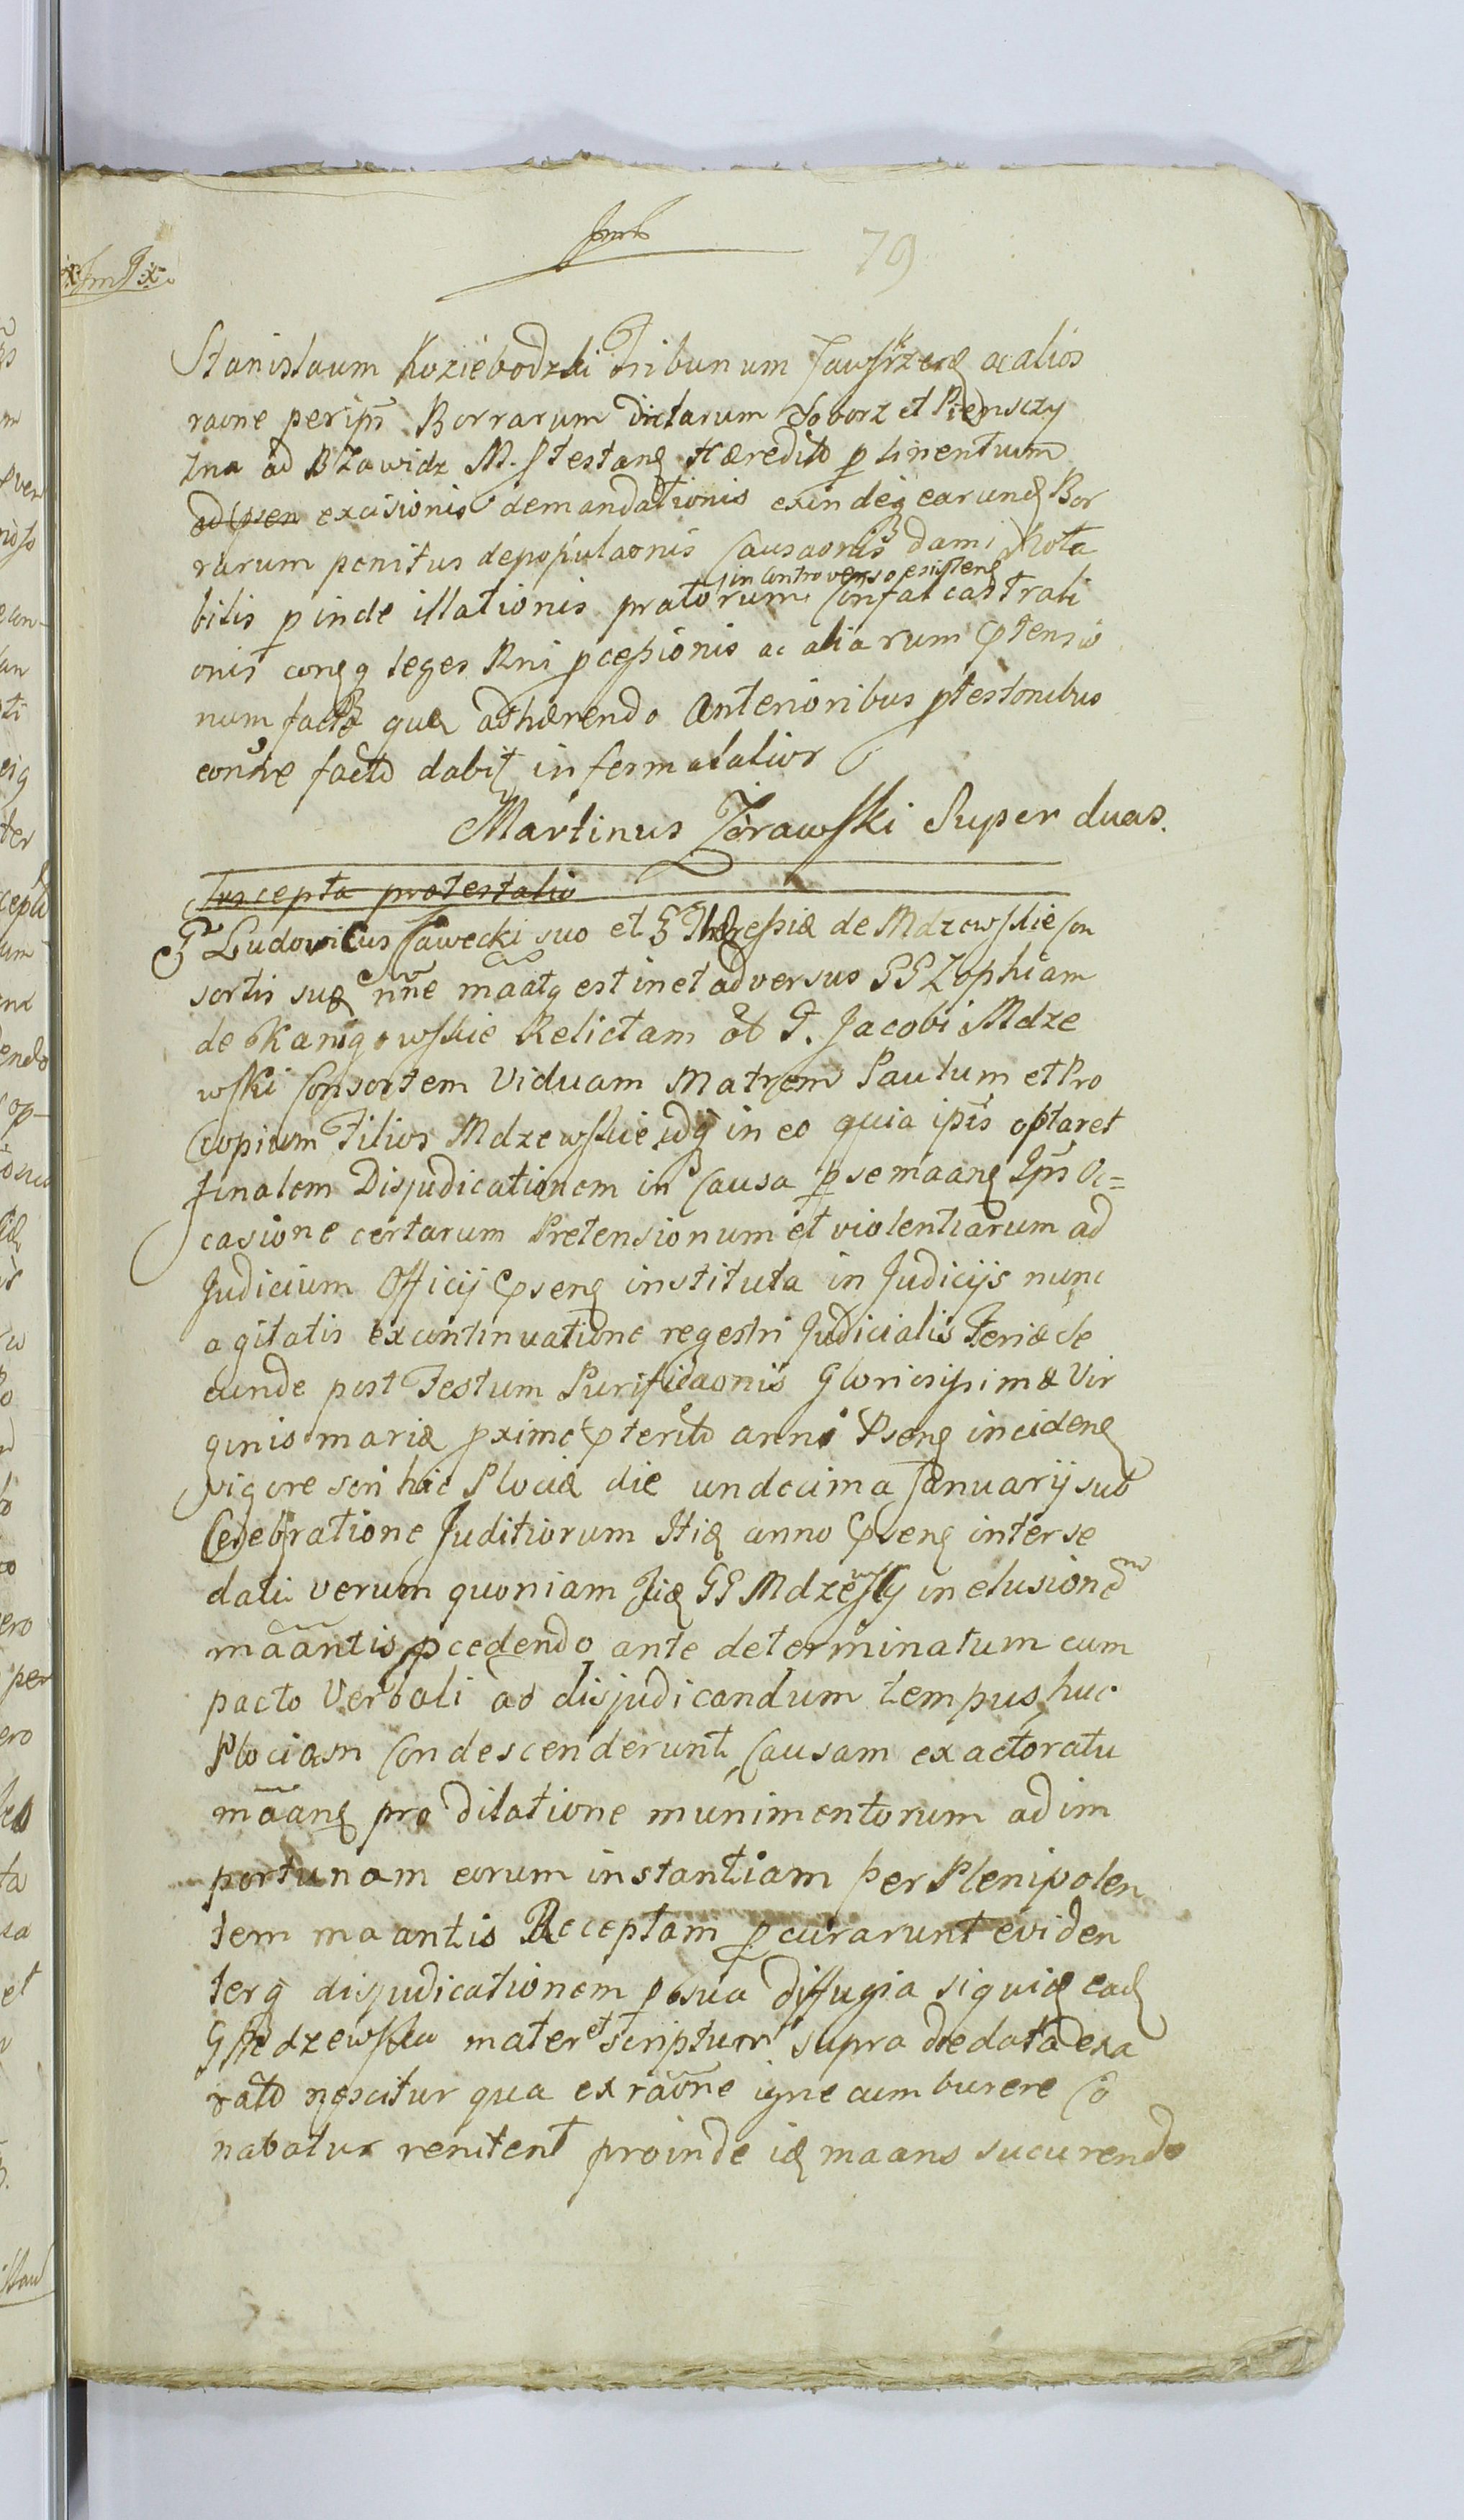 79
Stanislaum Koziebrodzki Tribunum Zawskrzeñ ac alios
raone per ipš Borrarum dictarum Soborz et Piensczy
zna ad B Zawidz M. Ptestanę Hæredito p tinentium
ad psen excisionis demandationis exindeq earund Bor
rarum penitus depopulaonis Causaonis dami Nota
bilis p inde illationis pratorum in Controverso existenę Confal castrati
onis conęq leges Rni pcessionis ac aliarum Ptensio
num factæ quæ adhærendo anterioribus ptestonibus
eonne facto dabit in ferma latior
Martinus Zorawski Super duas.
Suscepta protestatio
G Ludovicus Sawecki suo et G Theressiæ de Mdzewskie Con
sortis suæ nne maatq est in et adversus GG Zophiam
de Kanigowskie Relictam ol G. Jacobi Mdze
wski Consortem Viduam Matrem Paulum et Pro
copium Filios Mdzewskie idq in eo quia ipš optaret
finalem Disjudicationem in Causa p se maanę Ipš Oc=
casione certarum Pretensionum et violentiarum ad
Judicium Officij Psenę instituta in Judicijs nunc
agitatis ex continuatione regestri Judicialis Feriæ Se
cunde post Festum Purificaonis Gloriosissimæ Vir
ginis mariæ pxime Pterito anni Psenę incidenę
vigore scri hic Plociæ die undecima Januarij sub
Celebratione Juditiorum Itię anno Psenę inter se
dati verum quoniam Iię GG Mdzewscy in elusionem
maantis pcedendo ante determinatum cum
pacto Verbali ad disjudicandum tempus huc
Plociam Condescenderunt Causam ex actoratu
maanę pro dilatione munimentorum ad im
portunam eorum instantiam per Plenipoten
tem maantis Receptam pcurarunt eviden
terq disjudicationem p sua diffugia siquię eadę
G Mdzewska mater et scriptum supra de data exa
rato nescitur qua ex raone igne cumburere Co
nabatur renitent proinde ię maans sucurendo